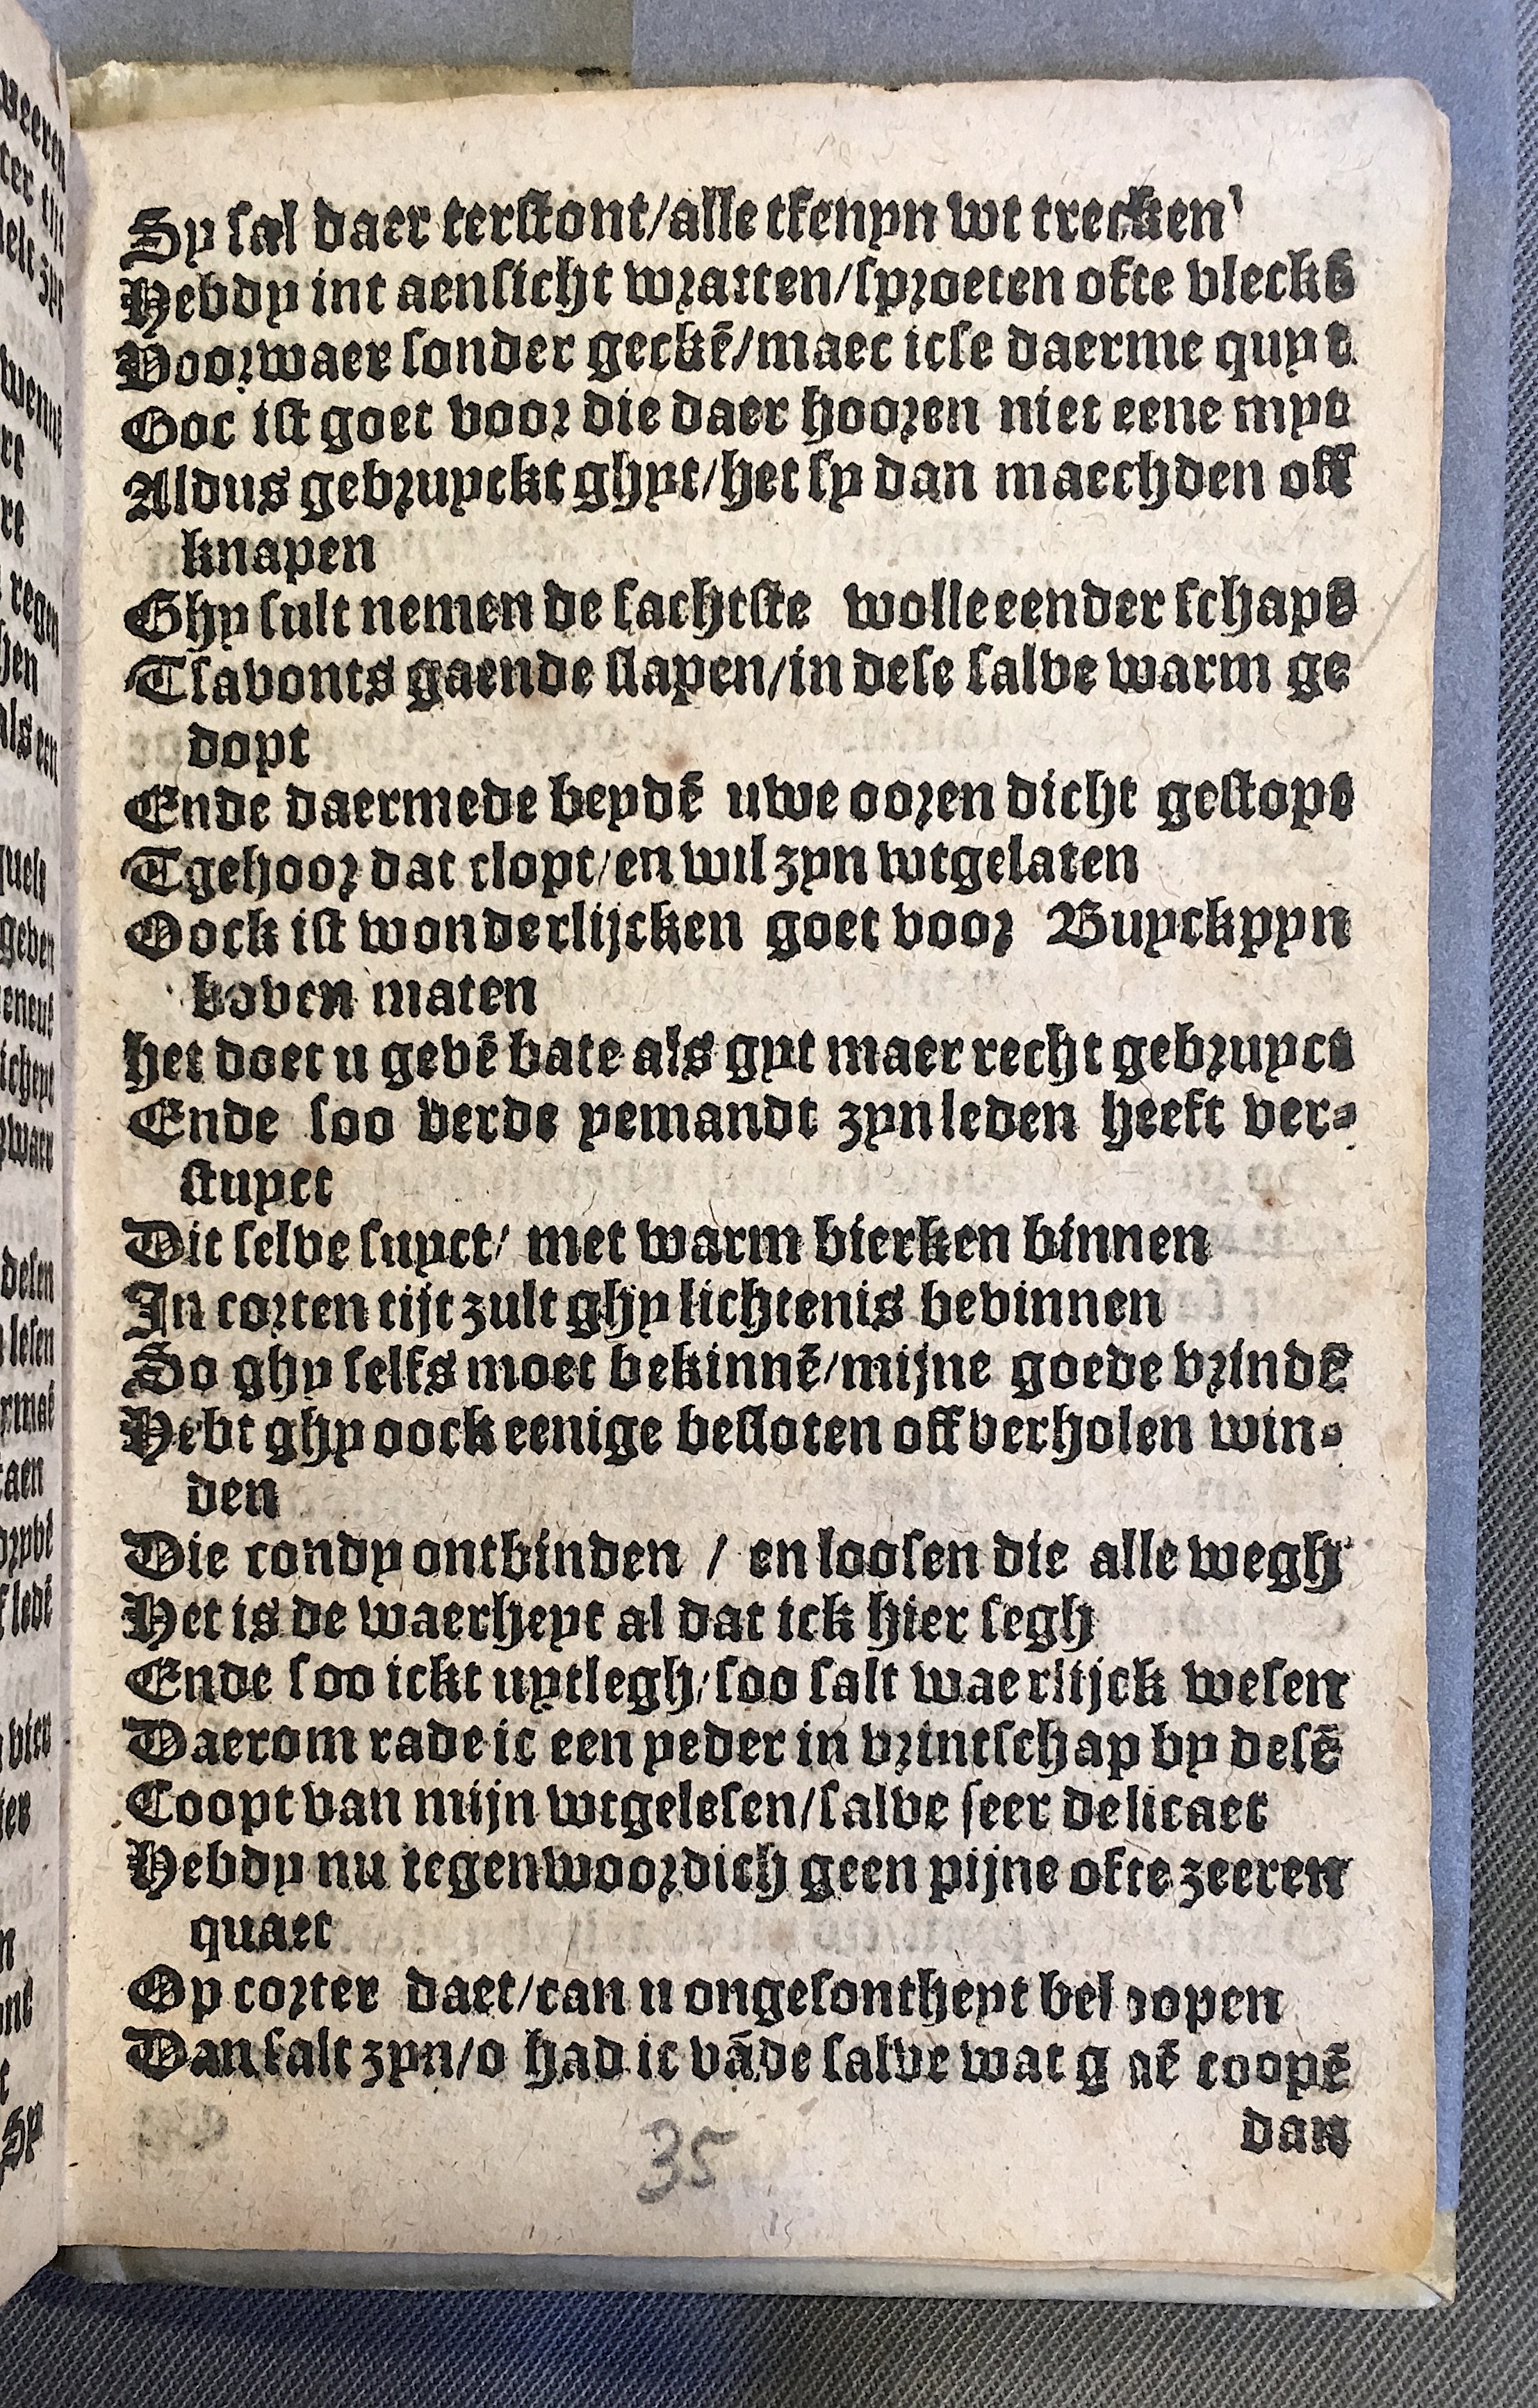 Sy sal daer terstont/alle tfenyn wt trecken
Hebdy int aensicht wratten/sproeten ofte vleckē
Voorwaer sonder geckē/maec icse daerme quyt
Ooc ist goet voor die daer hooren niet eene myt
Aldus gebruyckt ghyt/het sy dan maechden off
knapen
Ghy sult nemen de sachtste wolle eender schaps
Tsavonts gaende slapen/in dese salve warm ge
dopt
Ende daermede beydē uwe ooren dicht gestopt
Tgehoor dat clopt/en wil zyn wtgelaten
Oock ist wonderlijcken goet voor Buyckpyn
boven maten
het doet u gevē bate als gyt maer recht gebruyct
Ende soo verde yemandt zyn leden heeft ver-
stuyct
Dit selve suyct/ met warm bierken binnen
In corten tijt zult ghy lichtenis bevinnen
So ghy selfs moet bekinnē/mijne goede vrindē
Hebt ghy oock eenige besloten off verholen win-
den
Die condy ontbinden / en loosen die alle wegh
Het is de waerheyt al dat ick hier segh
Ende soo ickt uytlegh/soo salt waerlijck wesen
Daerom rade ic een yeder in vrintschap by desē
Coopt van mijn wtgelesen/salve seer delicaet
Hebdy nu tegenwoordich geen pijne ofte zeeren
quaet
Op corter daet/can u ongesontheyt bel oopen
Dan salt zyn/o had ic vāde salve wat g aē coopē
dan
35